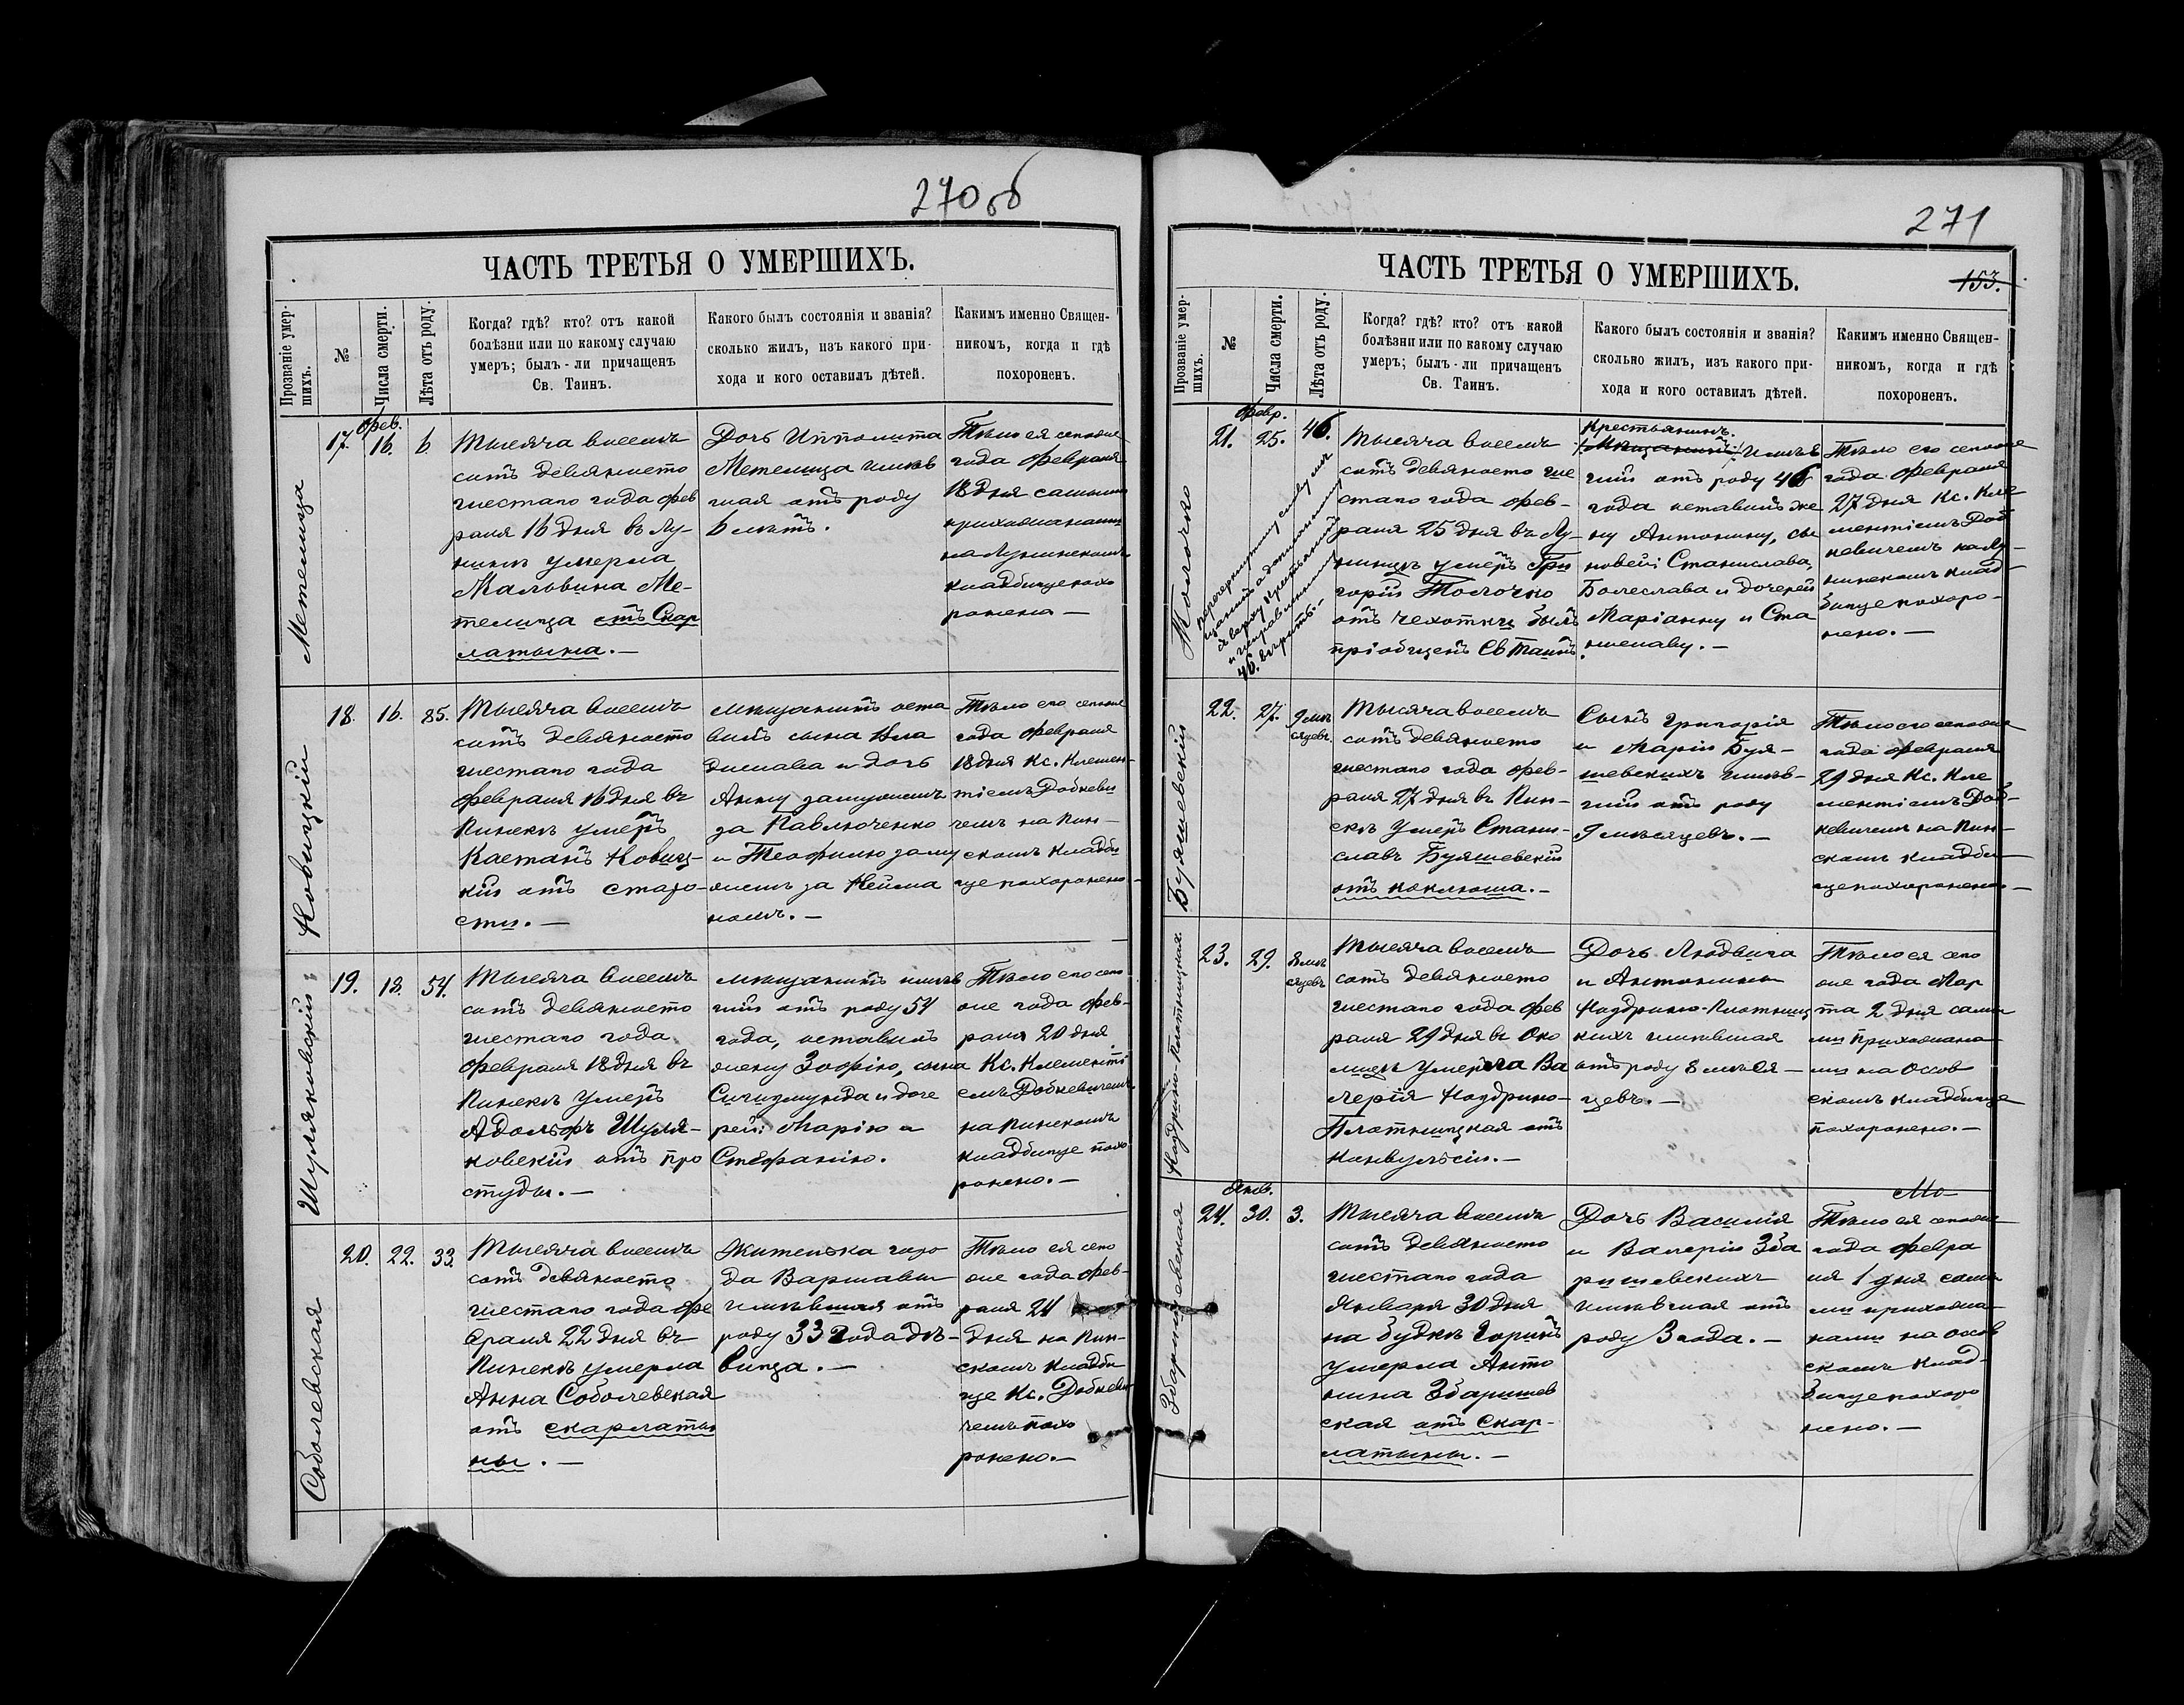 270 об
ЧАСТЬ ТРЕТЬЯ О УМЕРШИХЪ.
Прозваніе умер-
шихъ.
№
Числа смерти.
Лѣта отъ роду.
Когда? гдѣ? кто? отъ какой
болѣзни или по какому случаю
умеръ; былъ-ли причащенъ
Св. Таинъ.
Какого былъ состоянія и званія?
сколько жилъ, изъ какого при-
хода и кого оставилъ дѣтей.
Какимъ именно Священ-
никомъ, когда и гдѣ
похороненъ.
Метелица
17.
Фев.
16.
6
Тысяча восемь
сотъ девяносто
шестаго года фев
раля 16 дня въ Лу-
нинѣ умерла
Мальвина Ме-
телица отъ Скар
латына. —
Дочь Ипполита
Метелица имѣв
шая отъ роду
6 лѣтъ.
Тѣло ея сегоже
года февраля
18 дня самыми
прихожанами
на Лунинскомъ
кладбище похо
ронена —
Ковицкій
18.
16.
85.
Тысяча восемь
сотъ девяносто
шестаго года
февраля 16 дня въ
Пинскѣ умеръ
Каетанъ Ковиц-
кій отъ старо-
сти. —
мѣщанинъ оста
вилъ сына Вла
дислава и дочь
Анну замужемъ
за Павлюченко
и Теофилю заму
жемъ за Нейма
номъ. —
Тѣло его сегоже
года февраля
18 дня Кс. Клемен-
тіемъ Добкеви
чемъ на Пин-
скомъ кладби
ще похоронено —
Шуляковскій
19.
18.
54.
Тысяча восемь
сотъ девяносто
шестаго года
февраля 18 дня въ
Пинскѣ умеръ
Адольфъ Шуля-
ковскій отъ про
студы. —
мѣщанинъ имѣв
шій отъ роду 54
года, оставилъ
жену Зофію, сына
Сигизмунда и доче
рей: Марію и
Стефанію.
Тѣло его сего
же года фев-
раля 20 дня
Кс. Клементі
емъ Добкевичемъ
на Пинскомъ
кладбище похо
ронено. —
Соболевская
20.
22.
33.
Тысяча восемь
сотъ девяносто
шестаго года фе
враля 22 дня въ
Пинскѣ умерла
Анна Соболевская
отъ скарлаты
ны. —
Жителька горо
да Варшавы
имѣвшая отъ
роду 33 года дѣ-
вица. —
Тѣло ея сего
же года фев-
раля 24
дня на Пин-
скомъ кладби
ще Кс. Добкеви
чемъ похо
ронено. —
271
ЧАСТЬ ТРЕТЬЯ О УМЕРШИХЪ.
153.
Прозваніе умер-
шихъ.
№
Числа смерти.
Лѣта отъ роду.
Когда? гдѣ? кто? отъ какой
болѣзни или по какому случаю
умеръ; былъ-ли причащенъ
Св. Таинъ.
Какого былъ состоянія и званія?
сколько жилъ, изъ какого при-
хода и кого оставилъ дѣтей.
Какимъ именно Священ-
никомъ, когда и гдѣ
похороненъ.
Толочко
21.
Февр.
25.
46.
перечеркнутому слову мѣ
щанинъ а дописанному
сверху крестьянинъ
и исправленному
46. вѣрить. —
Тысяча восемь
сотъ девяносто ше
стаго года фев-
раля 25 дня въ Лу-
нинцѣ умеръ Гри
горій Толочко
отъ чехотки былъ
пріобщенъ Св Таинъ.
Крестьянинъ.
Мѣщанинъ имѣв
шій отъ роду 46
года оставилъ же
ну Антонину, сы
новей: Станислава,
Болеслава и дочерей
Маріанну и Ста
ниславу. —
Тѣло его сегоже
года февраля
27 дня Кс. Кле
ментіемъ Доб
кевичемъ на Лу-
нинскомъ клад-
бище похоро-
нено. —
Буяшевскій
22.
27.
9 мѣ
сяцевъ.
Тысяча восемь
сотъ девяносто
шестаго года фев-
раля 27 дня въ Пин-
скѣ умеръ Стани-
славъ Буяшевскій
отъ коклюша. —
Сынъ Григорія
и Маріи Буя-
шевскихъ имѣв-
шій отъ роду
9 мѣсяцевъ. —
Тѣло его сегоже
года февраля
29 дня Кс. Кле
ментіемъ Доб-
кевичемъ на Пин-
скомъ кладби-
ще похоронено —
Ноздрино-Плотницкая.
23.
29.
8 мѣ
сяцевъ
Тысяча восемь
сотъ девяносто
шестаго года фев
раля 29 дня въ Око
лицѣ умерла Ва
лерія Ноздрино-
Плотницкая отъ
Конвульсіи. —
Дочь Людвига
и Антонины
Ноздрино-Плотниц
кихъ имѣвшая
отъ роду 8 мѣся —
цевъ. —
Тѣло ея сего
же года Мар
та 2 дня сами
ми прихожана-
ми на Оссов
скомъ кладбище
похоронено. —
Збаришевская
24.
Янв.
30.
3.
Тысяча восемь
сотъ девяносто
шестаго года
Января 30 дня
на будкѣ Горынь
умерла Анто
нина Збаришев
ская отъ Скар-
латыны. —
Дочь Василія
и Валеріи Зба
ришевскихъ
имѣвшая отъ
роду 3 года. —
Мо
Тѣло ея сегоже
года февра
ля 1 дня сами
ми прихожа-
нами на Оссов
скомъ клад-
бище похоро
нено. —